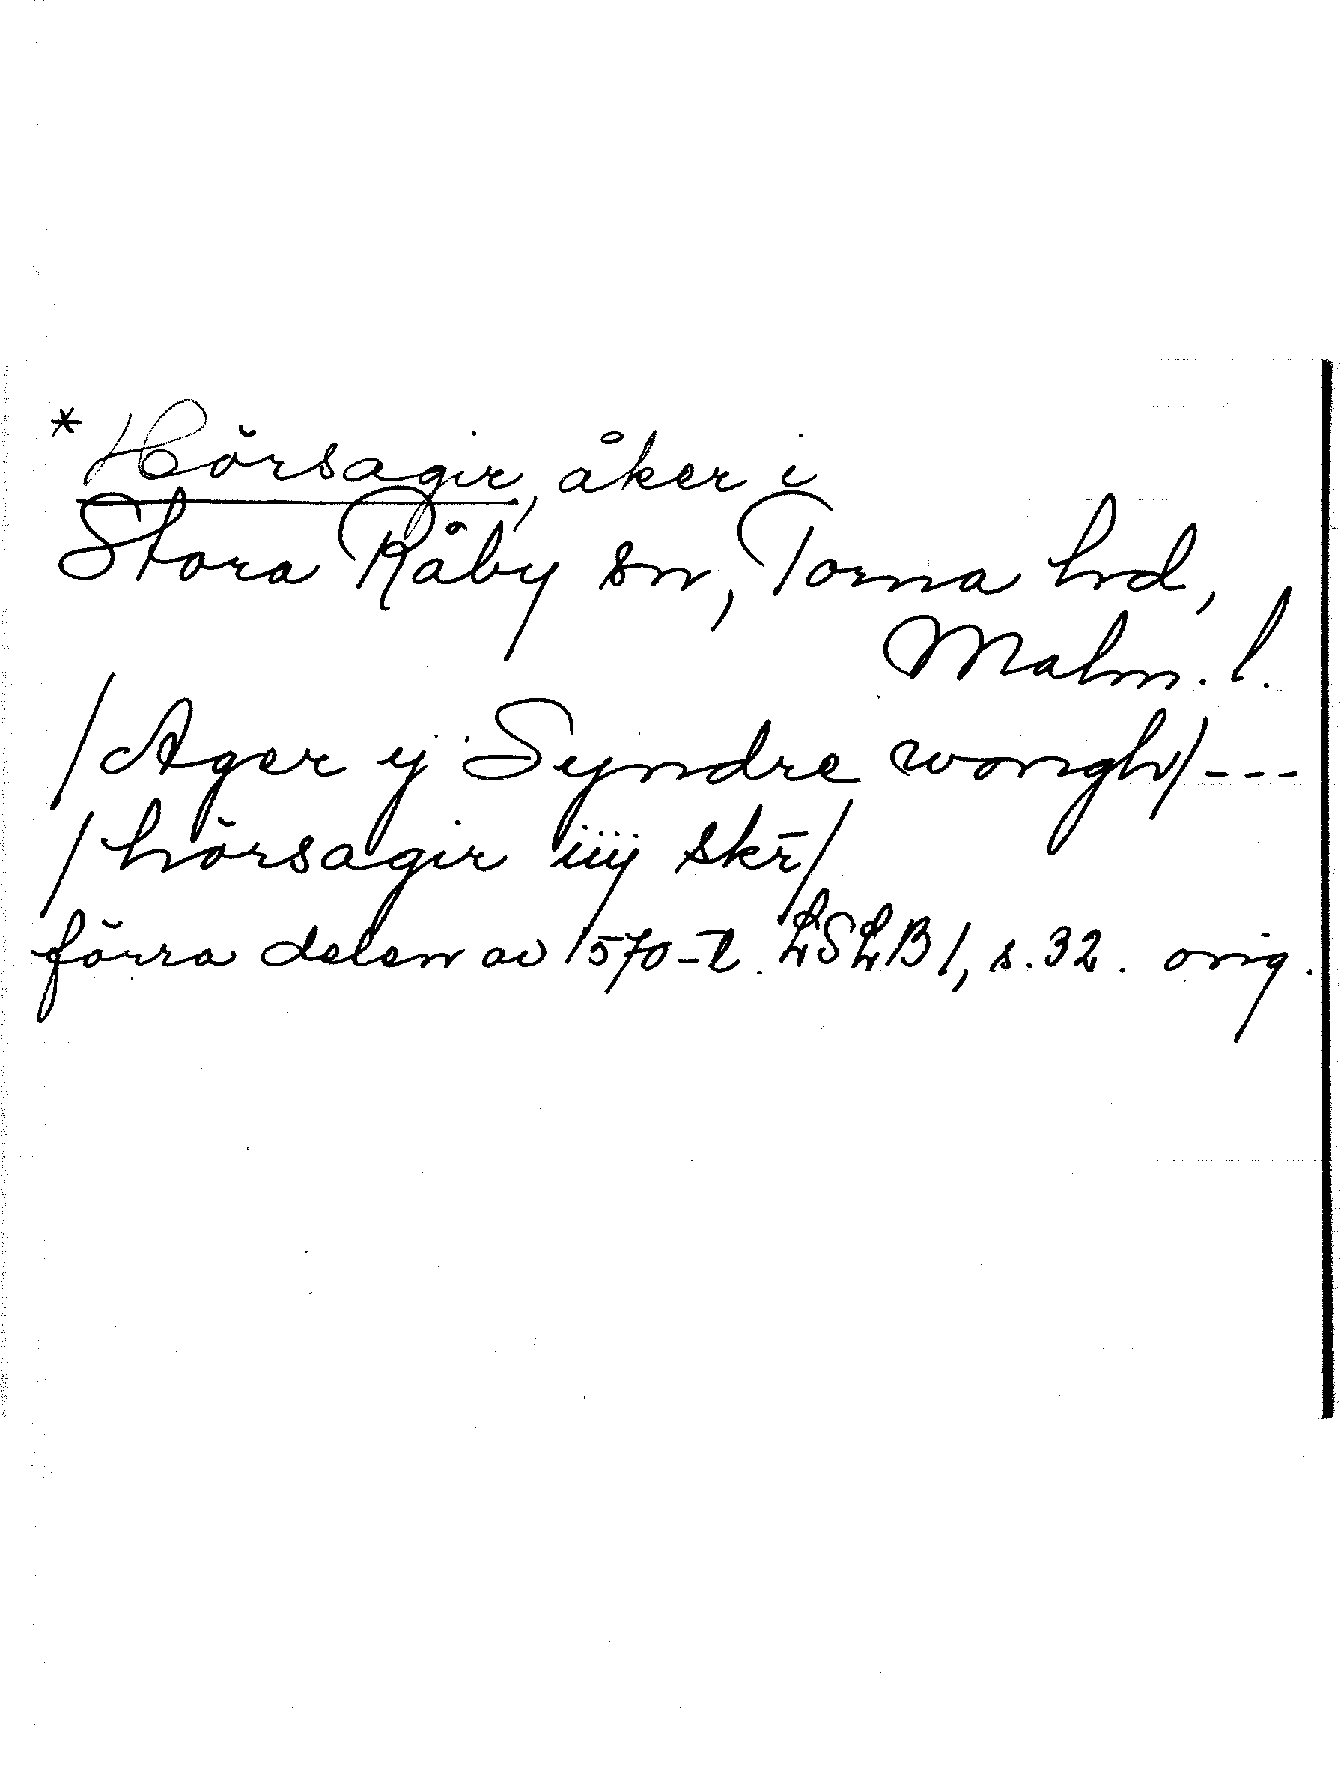 * Hörsagir, åker i
Stora Råby sn, Torna hrd,
Malm. l.
/Ager ÿ Syndre wongh/---
/hörsagir iiij skr̄/
förra delen av 1570-t. LSLB 1, s. 32. orig.